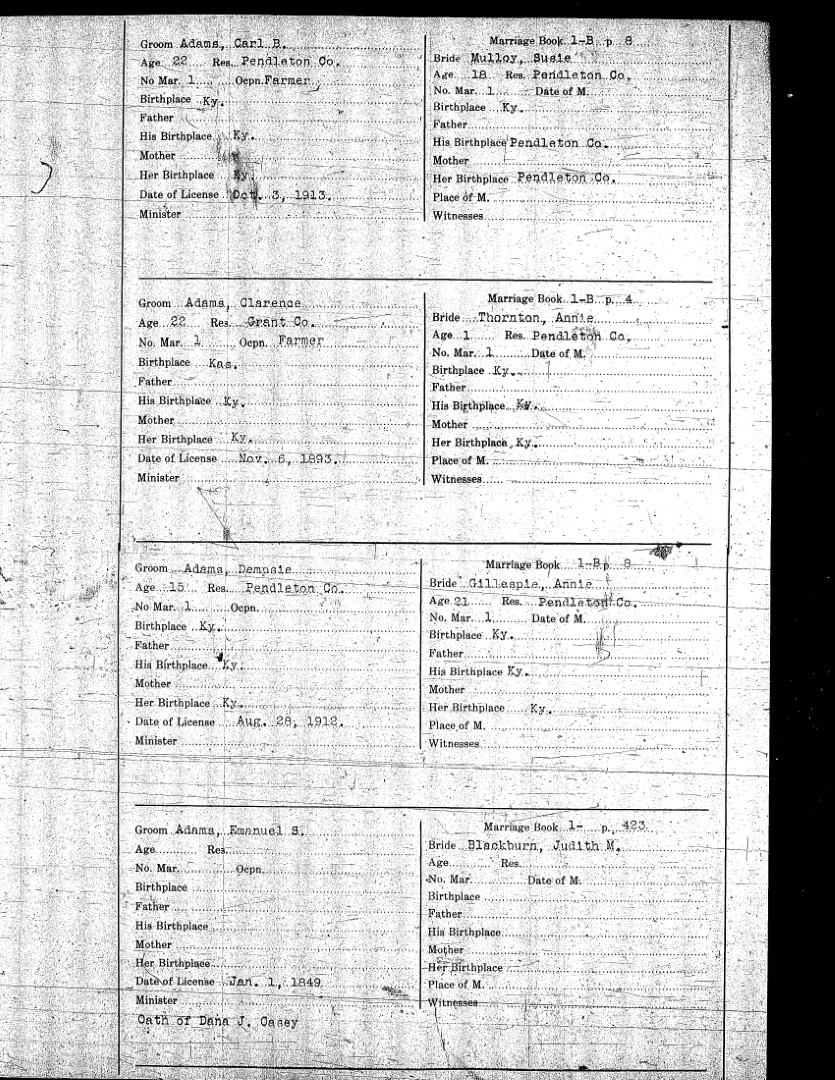 Groom Adams, Carl B.
Age 22 Res. Pendleton Co.
No Mar. 1 Ocpn. Farmer
Birthplace Ky.
Father
His Birthplace Ky.
Mother
Her Birthplace Ky.
Date of License Oct. 3, 1913.
Minister
Marriage Book 1-B p. 8
Bride Mulloy, Susie
Age 18 Res. Pendleton Co.
No. Mar. 1 Date of M.
Birthplace Ky.
Father
His Birthplace Pendleton Co.
Mother
Her Birthplace Pendleton Co.
Place of M.
Witnesses
Groom Adams, Clarence
Age 22 Res. Grant Co.
No. Mar. 1 Ocpn. Farmer
Birthplace Kas.
Father
His Birthplace Ky.
Mother
Her Birthplace Ky.
Date of License Nov. 6, 1893.
Minister
Marriage Book 1-B p. 4
Bride Thornton, Annie
Age 1 Res. Pendleton Co.
No. Mar. 1 Date of M.
Birthplace Ky.
Father
His Birthplace Ky.
Mother
Her Birthplace Ky.
Place of M.
Witnesses
Groom Adams, Dempsie
Age 15 Res. Pendleton Co.
No Mar. 1 Ocpn.
Birthplace Ky.
Father
His Birthplace Ky.
Mother
Her Birthplace Ky.
Date of License Aug. 28, 1912.
Minister
Marriage Book 1-B p. 8
Bride Gillespie, Annie
Age 21 Res. Pendleton Co.
No. Mar. 1 Date of M.
Birthplace Ky.
Father
His Birthplace Ky.
Mother
Her Birthplace Ky.
Place of M.
Witnesses
Groom Adams, Emanuel S.
Age Res.
No. Mar. Ocpn.
Birthplace
Father
His Birthplace
Mother
Her Birthplace
Date of License Jan. 1, 1849
Minister
Oath of Dana J. Casey
Marriage Book 1- p. 423
Bride Blackburn, Judith M.
Age Res.
No. Mar. Date of M.
Birthplace
Father
His Birthplace
Mother
Her Birthplace
Place of M.
Witnesses